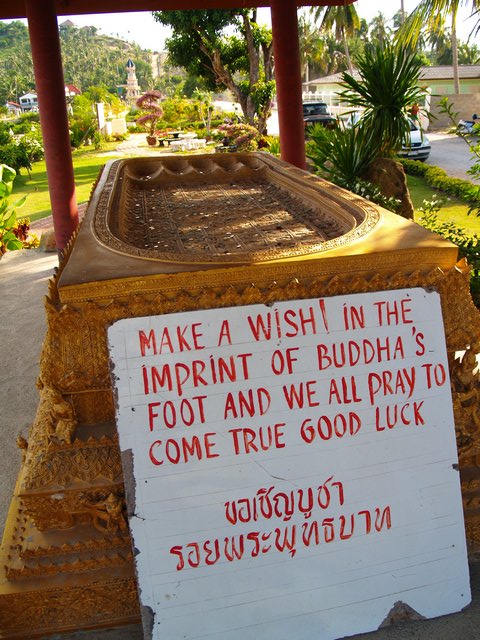 MAKE A WISH! IN THE
IMPRINT OF BUDDHA'S
FOOT AND WE ALL PRAY TO
COME TRUE GOOD LUCK
ขอเชิญบูชา
รอยพระพุทธบาท